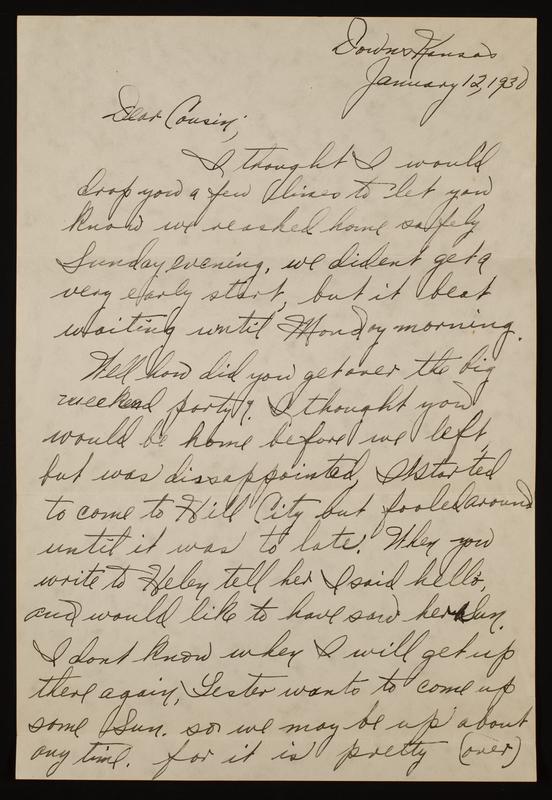 Downs Kansas
January 12, 1930
Dear Cousin;
I thought I would
drop you a few lines to let you
know we reached home safely
Sunday evening, we dident get a
very early start, but it beat
waiting until Monday morning.
Well how did you get over the big
weekend party? I thought you
would be home before we left,
but was dissappointed, I started
to come to Hill City but fooled around
until it was to late. When you
write to Helen tell her I said hello,
and would like to have saw her Sun.
I dont know when I will get up
there again, Lester wants to come up
some Sun. so we may be up about
any time. for it is pretty (over)